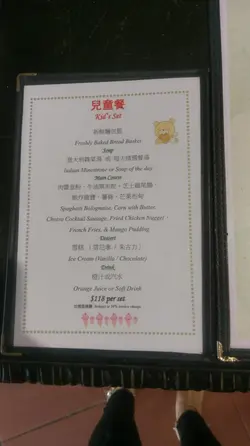 兒童餐
Kid's Set
新鮮麵包籃
Freshly Baked Bread Basket
Soup
意大利雜菜湯 或 每天精選餐湯
Italian Minestrone or Soup of the day
Main Course
肉醬意粉、牛油粟米粒、芝士雞尾腸、
脆炸雞塊、薯條、芒果布甸
Spaghetti Bolognaise, Corn with Butter,
Cheese Cocktail Sausage, Fried Chicken Nugget
French Fries, & Mango Pudding
Dessert
雪糕 (雲尼拿 / 朱古力)
Ice Cream (Vanilla / Chocolate)
Drink
橙汁或汽水
Orange Juice or Soft Drink
$118 per set
Subject to 10% service charge